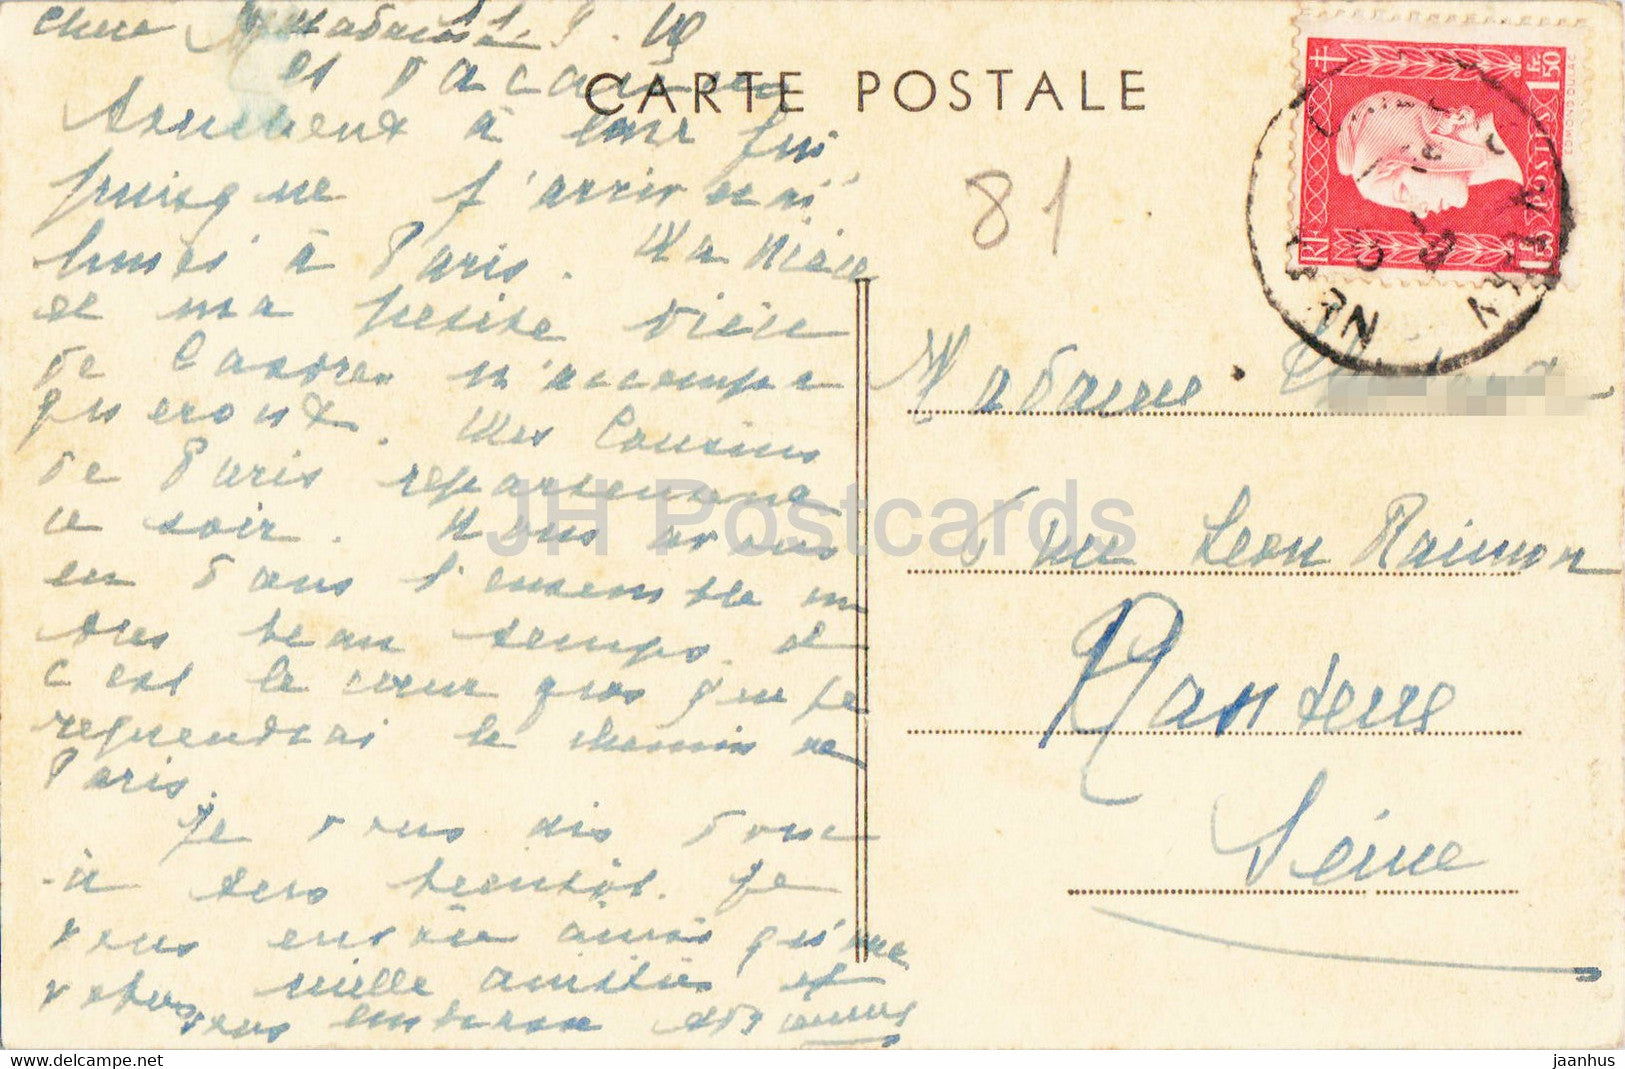 Chère Madame
et vacances
touchent à leur fin
puisque j'arriverai
lundi à Paris. Ma Nièce
et ma petite nièce
de Castres m'accompa
gneront. Mes Cousins
de Paris repartent
ce soir. Nous avons
eu dans l'ensemble un
très beau temps et
c'est le cœur gros que je
reprendrai le chemin de
Paris.
Je vous dis donc
à très bientôt. Je
vous envoie ainsi qu'à
mille amitiés et
vous embrasse
CARTE POSTALE
81
RF
POSTES
1F50
1,50
EDMOND DULAC
Madame
6 rue Leon Raimon
Nanterre
Seine
JH Postcards
www.delcampe.net
jaanhus